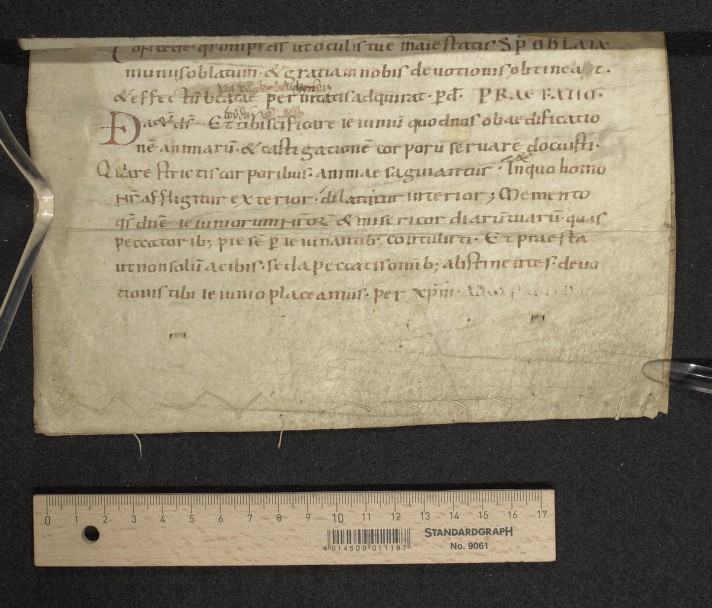 Concede qs omps ds ut oculis tuae maiestatis SP OBLATA
munus oblatum · & gratiam nobis devotionis obtineat ·
& effectū beatae perennitatis adquirat · p d · PRAEFATIO ·
aet ds · Et tibi scificare ieiuniū quod nos ob aedificatio
nē animarū · & castigationē corporū servare docuisti ·
Quia restrictis corporibus · animae saginantur · In quo homo
nr̄ affligitur exterior · dilatatur interior ; Memento
qs dne ieiuniorum nrōr & misericordiarū tuarū · quas
peccatorib; pie sē p ieiunantib; contulisti · Et praesta
ut non solū a cibis · sed a peccatis omib; abstinentes · devo
tionis tibi ieiunio placeamus · per xpm ·
0 1 2 3 4 5 6 7 8 9 10 11 12 13 14 15 16 17
4 014509 011197
STANDARDGRAPH
No. 9061